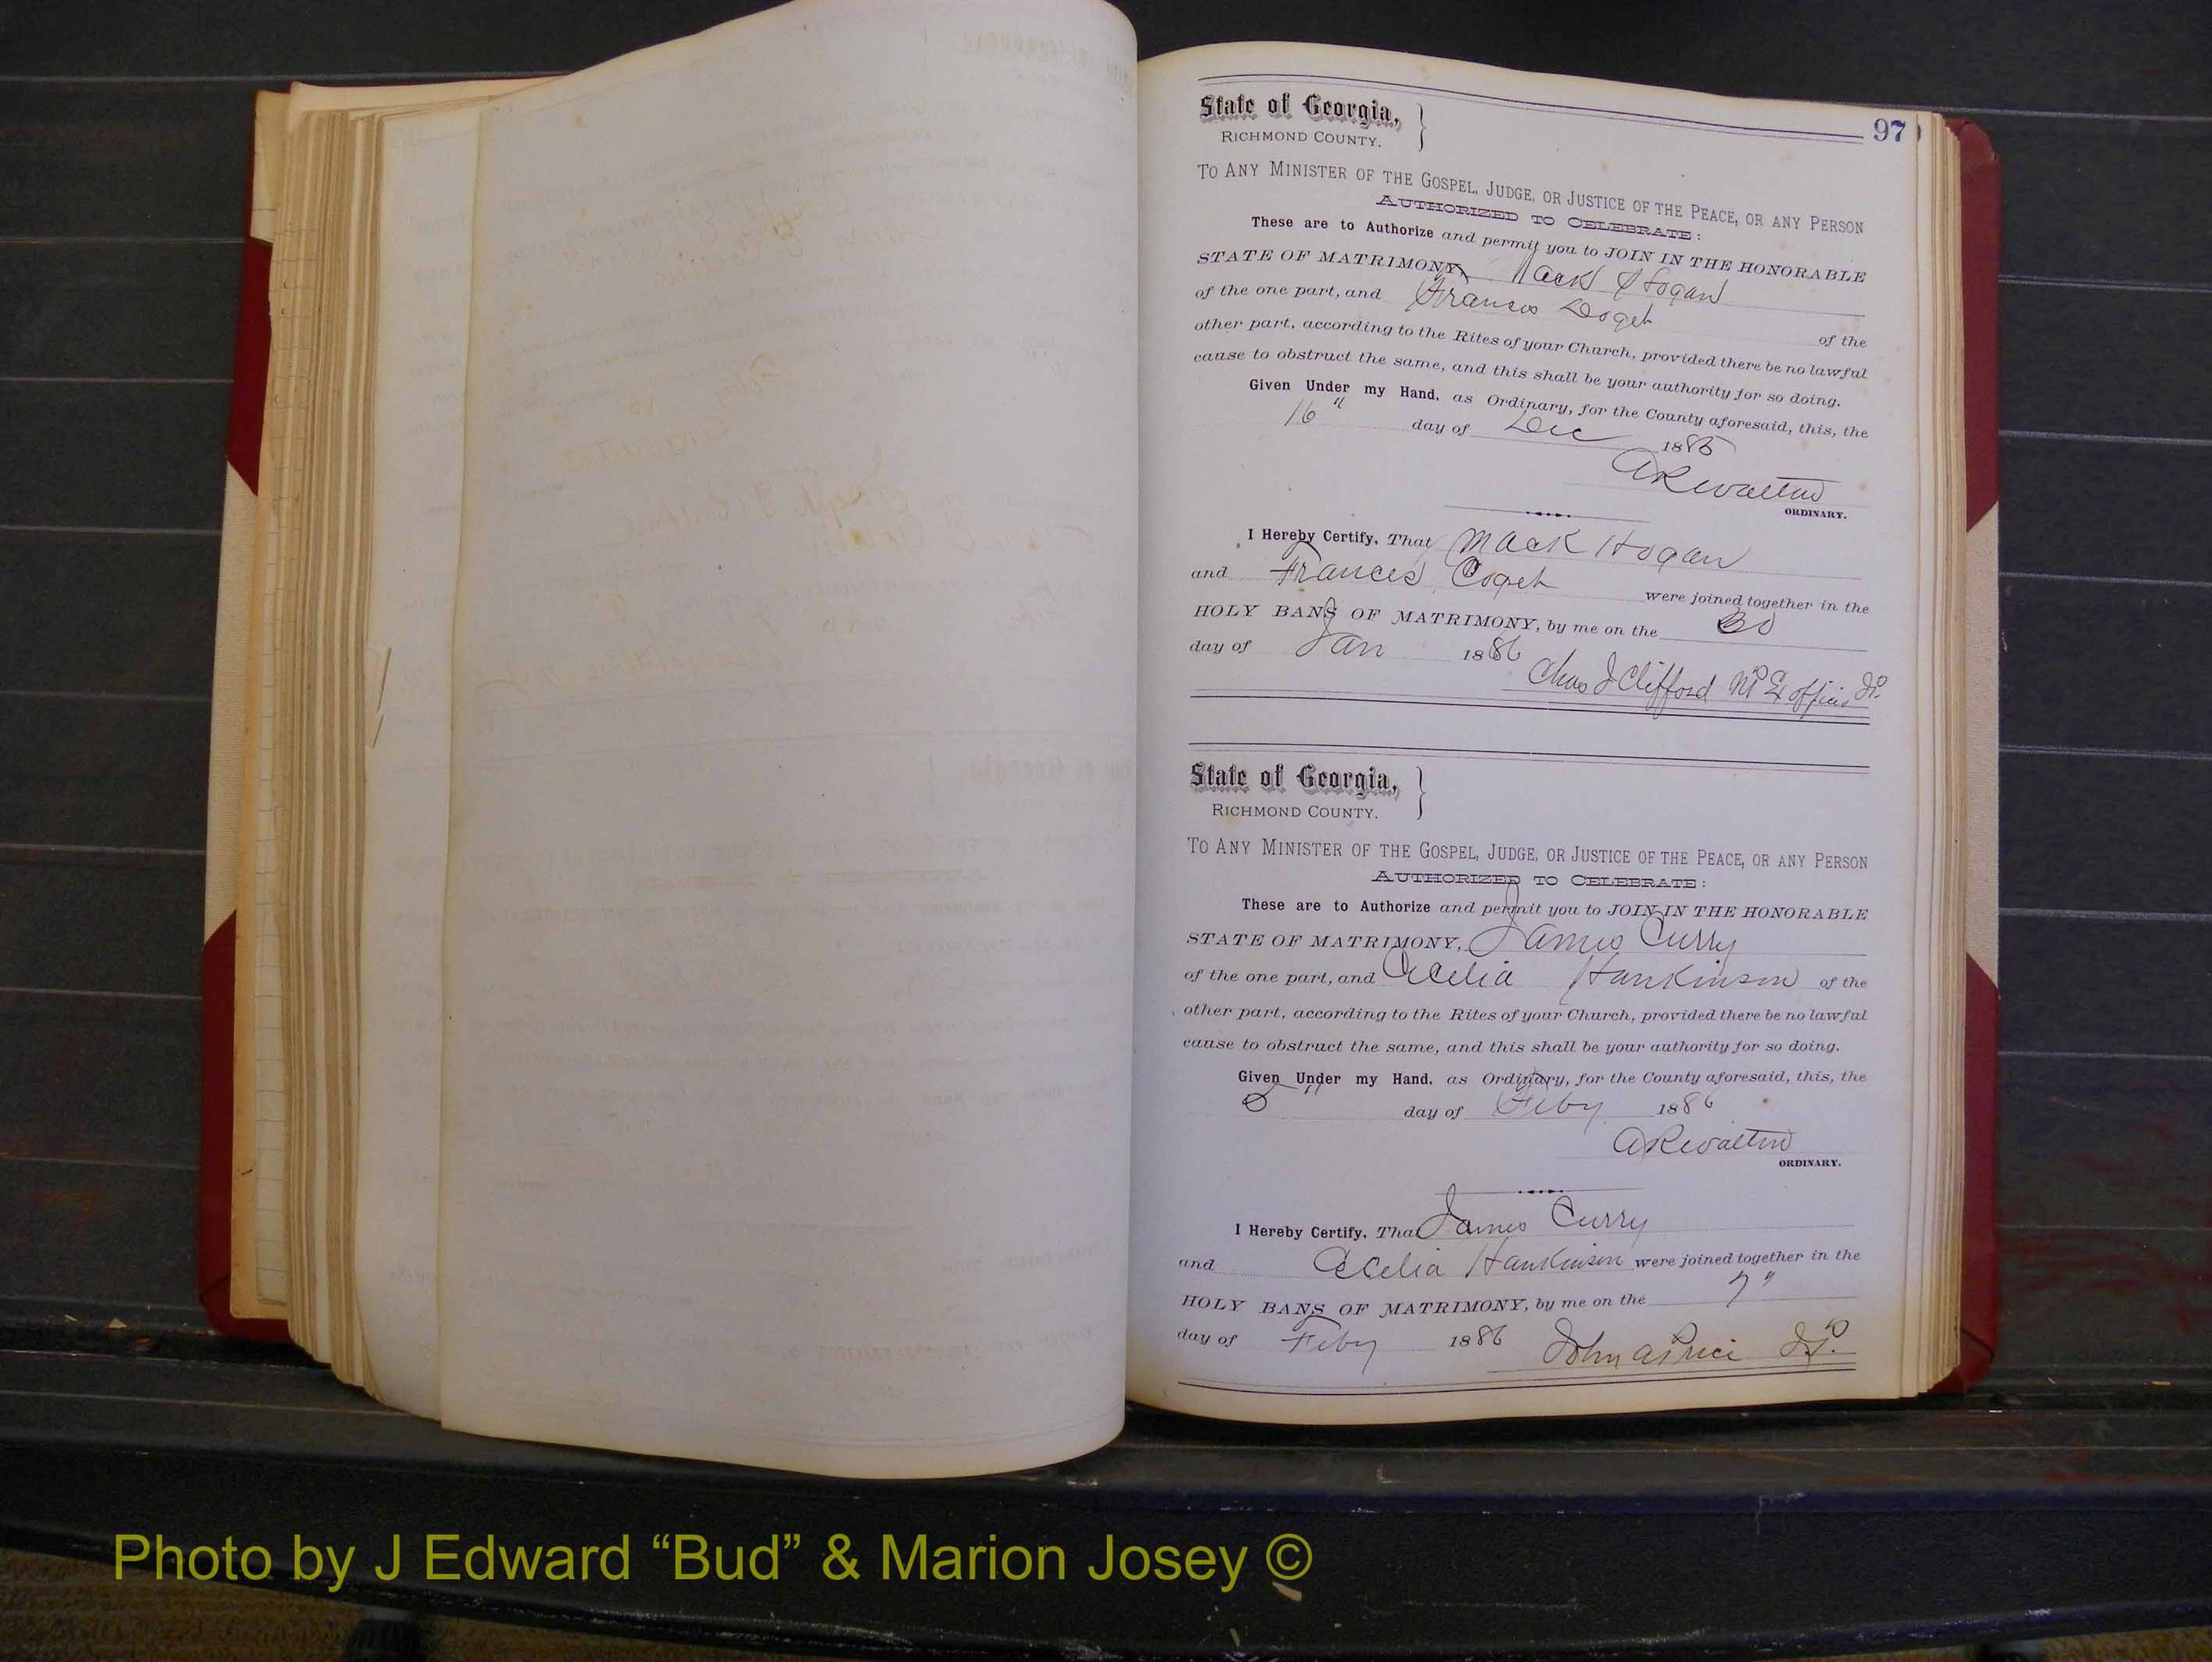 97
State of Georgia,
RICHMOND COUNTY.
TO ANY MINISTER OF THE GOSPEL, JUDGE, OR JUSTICE OF THE PEACE, OR ANY PERSON
AUTHORIZED TO CELEBRATE:
These are to Authorize and permit you to JOIN IN THE HONORABLE
STATE OF MATRIMONY, Mack Hogan
of the one part, and Frances Doget of the
other part, according to the Rites of your Church, provided there be no lawful
cause to obstruct the same, and this shall be your authority for so doing.
Given Under my Hand, as Ordinary, for the County aforesaid, this, the
16" day of Dec 1885
A R Walton
ORDINARY.
I Hereby Certify, That Mack Hogan
and Frances Coget were joined together in the
HOLY BANS OF MATRIMONY, by me on the 30
day of Jan 1886
Chas J Clifford NP Ex officio JP.
State of Georgia,
RICHMOND COUNTY.
TO ANY MINISTER OF THE GOSPEL, JUDGE, OR JUSTICE OF THE PEACE, OR ANY PERSON
AUTHORIZED TO CELEBRATE:
These are to Authorize and permit you to JOIN IN THE HONORABLE
STATE OF MATRIMONY, James Curry
of the one part, and Cecelia Hankinson of the
other part, according to the Rites of your Church, provided there be no lawful
cause to obstruct the same, and this shall be your authority for so doing.
Given Under my Hand, as Ordinary, for the County aforesaid, this, the
5" day of Feby 1886
A R Walton
ORDINARY.
I Hereby Certify, That James Curry
and Cecelia Hankinson were joined together in the
HOLY BANS OF MATRIMONY, by me on the 7"
day of Feby 1886 John A Price JP.
Photo by J Edward “Bud” & Marion Josey ©